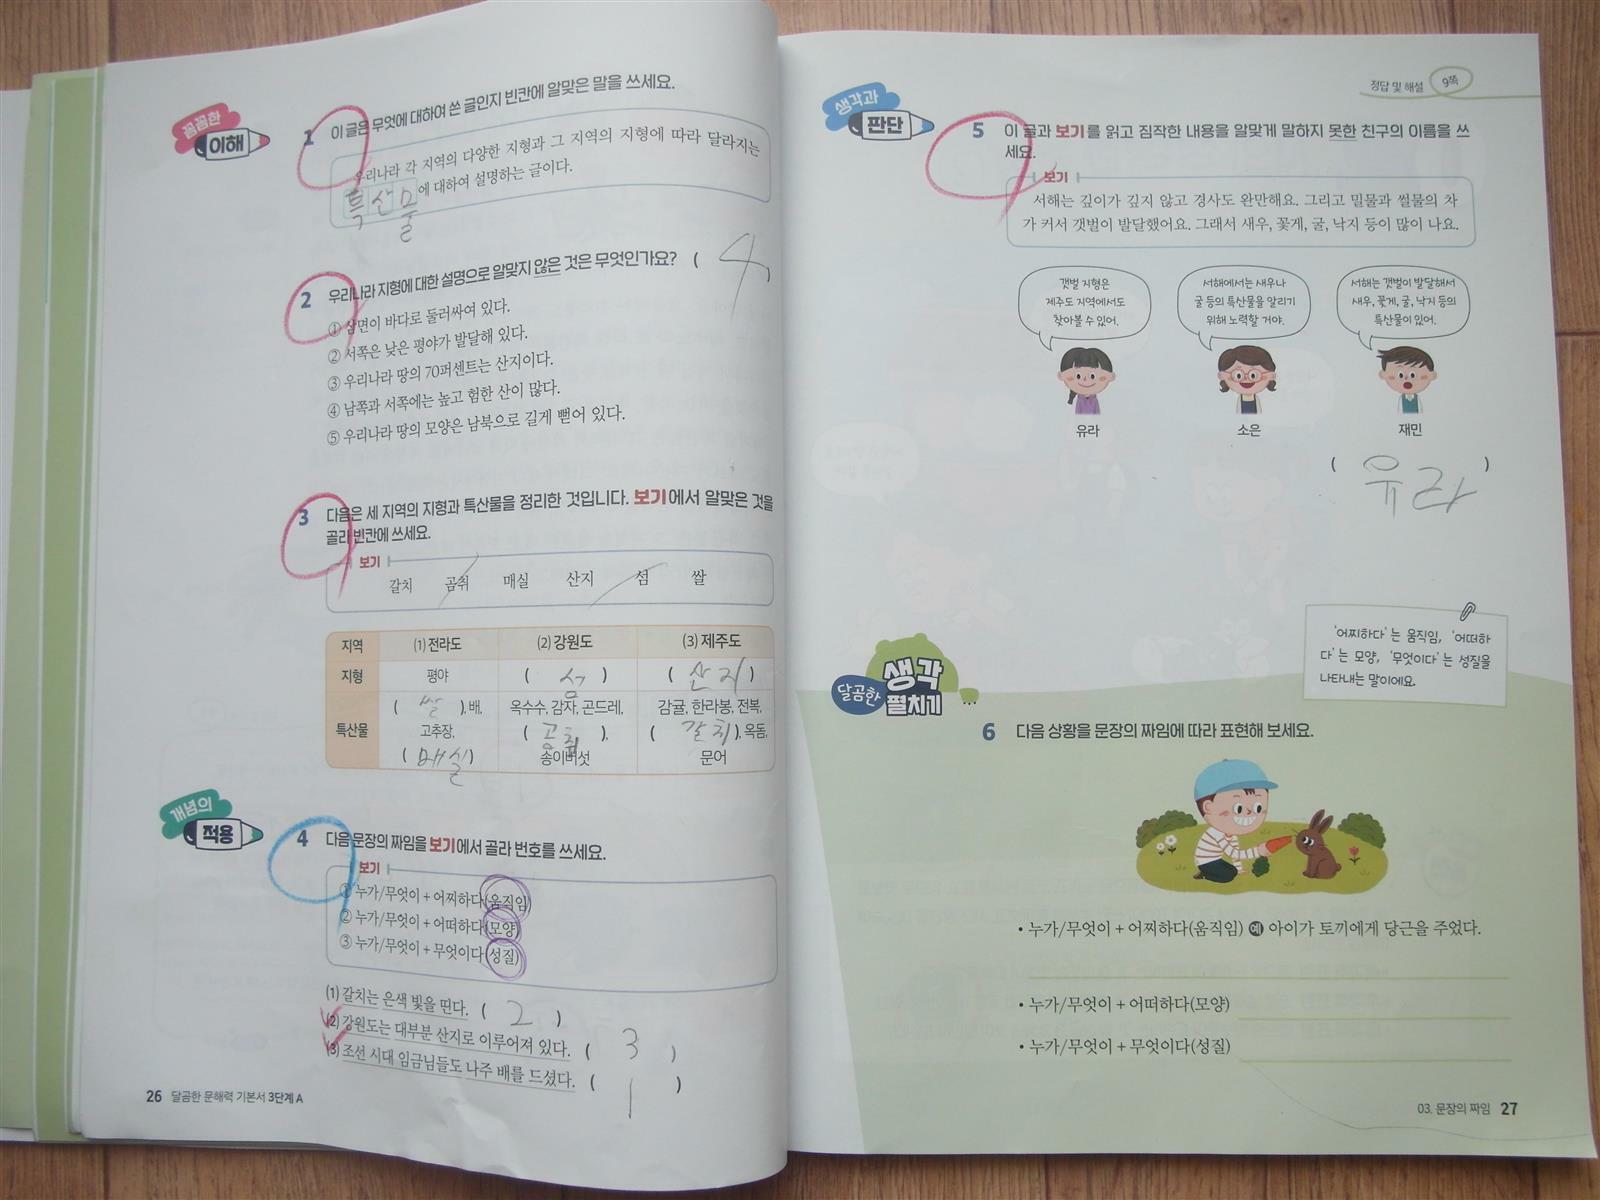 꼼꼼한
이해
1 이 글은 무엇에 대하여 쓴 글인지 빈칸에 알맞은 말을 쓰세요.
우리나라 각 지역의 다양한 지형과 그 지역의 지형에 따라 달라지는
특산물에 대하여 설명하는 글이다.
2 우리나라 지형에 대한 설명으로 알맞지 않은 것은 무엇인가요? ( 4 )
① 삼면이 바다로 둘러싸여 있다.
② 서쪽은 낮은 평야가 발달해 있다.
③ 우리나라 땅의 70퍼센트는 산지이다.
④ 남쪽과 서쪽에는 높고 험한 산이 많다.
⑤ 우리나라 땅의 모양은 남북으로 길게 뻗어 있다.
3 다음은 세 지역의 지형과 특산물을 정리한 것입니다. 보기에서 알맞은 것을
골라 빈칸에 쓰세요.
보기
갈치 곰취 매실 산지 섬 쌀
지역 (1) 전라도 (2) 강원도 (3) 제주도
지형 평야 ( 섬 ) ( 산지 )
특산물 ( 쌀 ), 배, 고추장, ( 매실 )
옥수수, 감자, 곤드레, ( 곰취 ), 송이버섯
감귤, 한라봉, 전복, ( 갈치 ), 옥돔, 문어
개념의
적용
4 다음 문장의 짜임을 보기에서 골라 번호를 쓰세요.
보기
① 누가/무엇이 + 어찌하다(움직임)
② 누가/무엇이 + 어떠하다(모양)
③ 누가/무엇이 + 무엇이다(성질)
(1) 갈치는 은색 빛을 띤다. ( 2 )
(2) 강원도는 대부분 산지로 이루어져 있다. ( 3 )
(3) 조선 시대 임금님들도 나주 배를 드셨다. ( 1 )
26 달곰한 문해력 기본서 3단계 A
정답 및 해설 9쪽
생각과
판단
5 이 글과 보기를 읽고 짐작한 내용을 알맞게 말하지 못한 친구의 이름을 쓰
세요.
보기
서해는 깊이가 깊지 않고 경사도 완만해요. 그리고 밀물과 썰물의 차
가 커서 갯벌이 발달했어요. 그래서 새우, 꽃게, 굴, 낙지 등이 많이 나요.
갯벌 지형은
제주도 지역에서도
찾아볼 수 있어.
서해에서는 새우나
굴 등의 특산물을 알리기
위해 노력할 거야.
서해는 갯벌이 발달해서
새우, 꽃게, 굴, 낙지 등의
특산물이 있어.
유라
소은
재민
( 유라 )
달곰한
생각
펼치기
'어찌하다'는 움직임, '어떠하
다'는 모양, '무엇이다'는 성질을
나타내는 말이에요.
6 다음 상황을 문장의 짜임에 따라 표현해 보세요.
• 누가/무엇이 + 어찌하다(움직임) 예 아이가 토끼에게 당근을 주었다.
• 누가/무엇이 + 어떠하다(모양)
• 누가/무엇이 + 무엇이다(성질)
03. 문장의 짜임 27